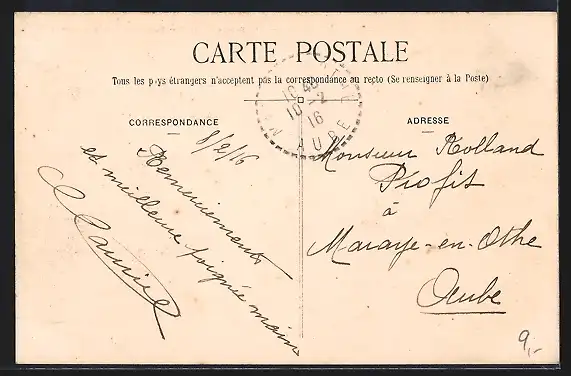 CARTE POSTALE
Tous les pays étrangers n'acceptent pas la correspondance au recto (Se renseigner à la Poste)
CORRESPONDANCE
8/2/16
Remerciements
et meilleure poignée main
ADRESSE
Monsieur Rolland
Profit
à
Maraye-en-Othe
Aube
10
10 -2
16
AUBE
9,-